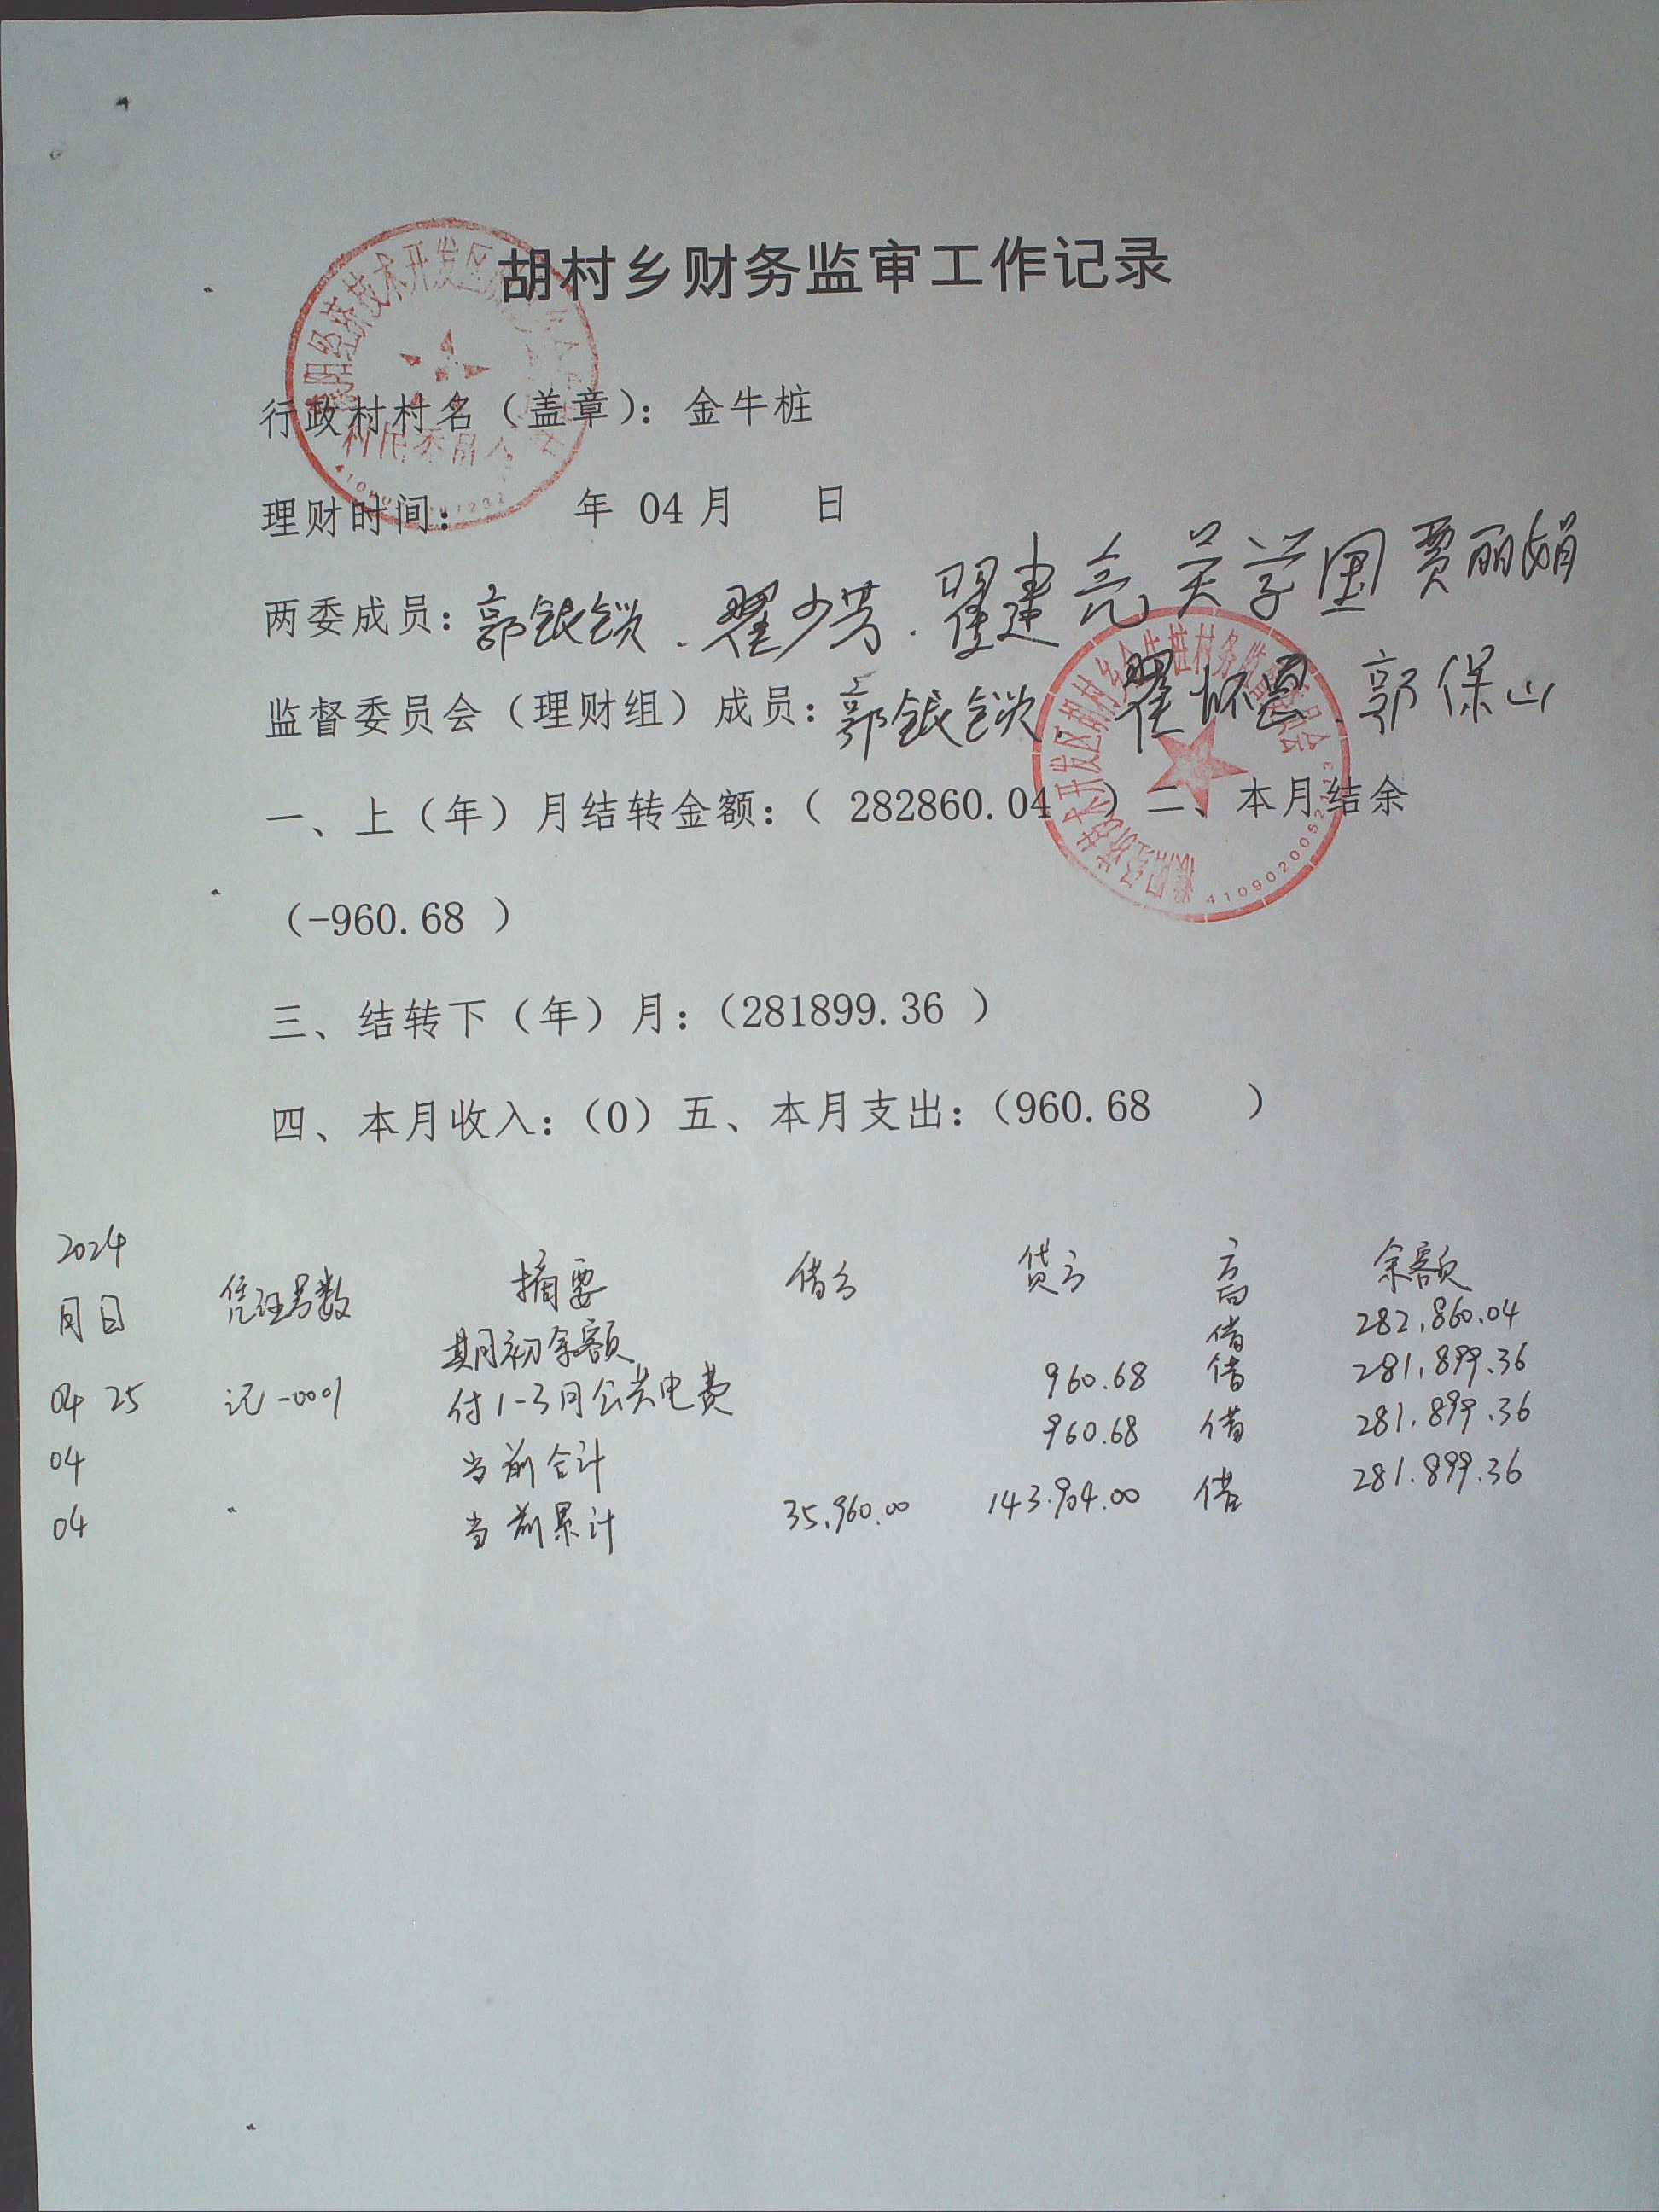 胡村乡财务监审工作记录
行政村村名（盖章）：金牛桩
理财时间： 年 04月 日
两委成员：郭银锁.翟少芳.翟建亮 关学国 贾丽娟
监督委员会（理财组）成员：郭银锁.翟怀恩.郭保山
一、上（年）月结转金额：（ 282860.04 ）二、本月结余
（-960.68 ）
三、结转下（年）月：（281899.36 ）
四、本月收入：（0）五、本月支出：（960.68 ）
2024
月日 凭证号数 摘要 借方 贷方 方向 余额
期初余额 借 282,860.04
04 25 记-0001 付1-3月公共电费 960.68 借 281,899.36
04 当前合计 960.68 借 281,899.36
04 当前累计 35,960.00 143,904.00 借 281,899.36
经济技术开发区
村民委员会
开发区胡村乡金牛桩村务监督委员会